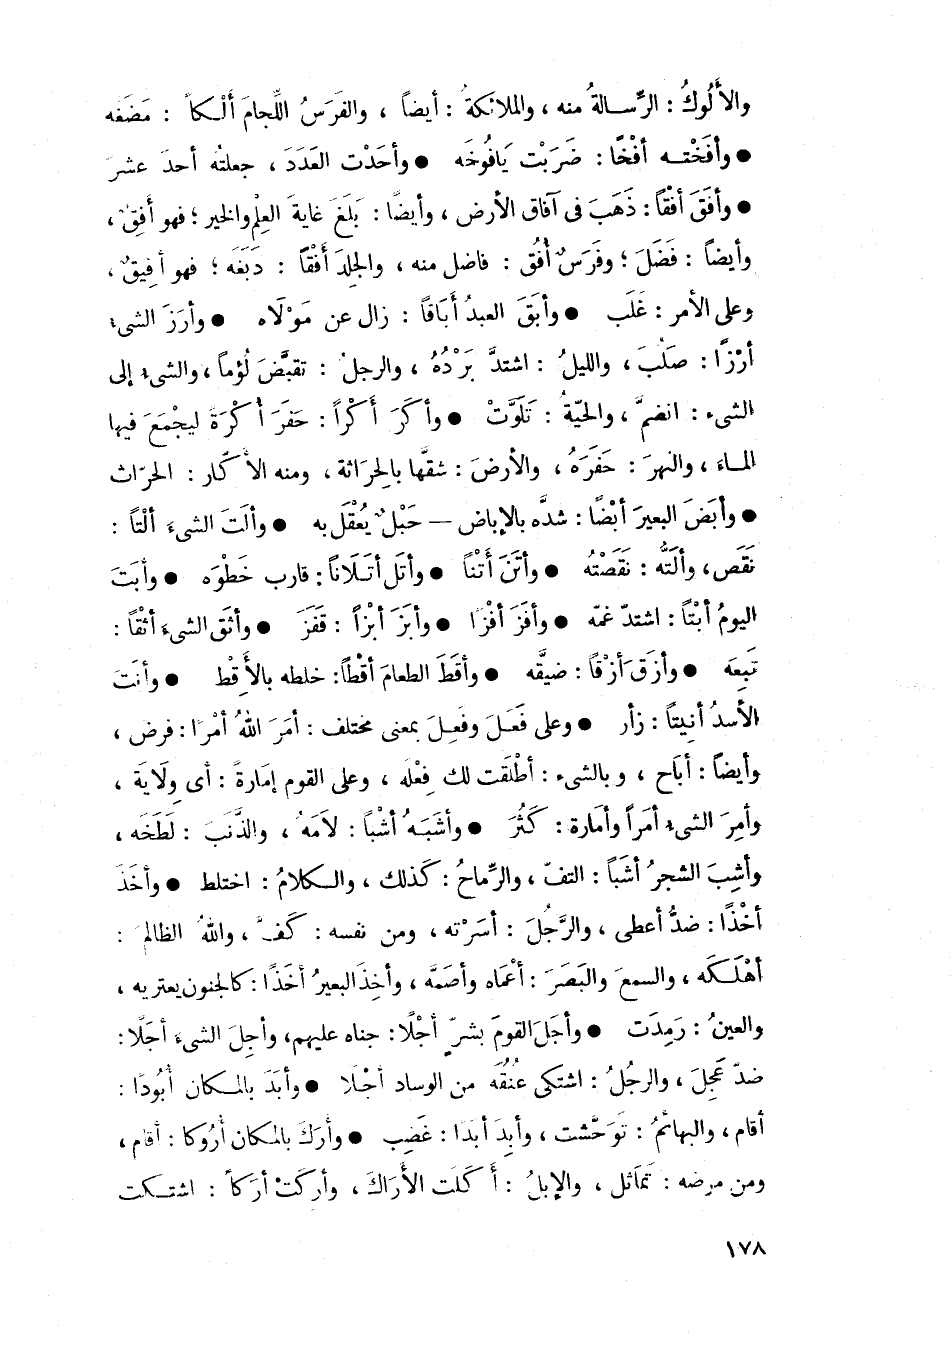 والأَلُوكُ : الرِّسالةُ منه ، والملائكةُ : أيضاً ، والفَرَسُ اللِّجامَ أَلْكاً : مَضَغه
● وأفَخْته أفْخًا : ضَرَبْت يَافُوخَه ● وأحَدْت العَدَدَ ، جعلتُه أحدَ عشرَ
● وأفَقَ أفْقاً : ذَهَبَ فى آفاق الأرض ، وأيضًا : بَلَغَ غايةَ العِلْم والخير ؛ فهو أَفِقٌ ،
وأيضاً : فَضَلَ ؛ وفَرَسٌ أُفُق : فاضل منه ، والجِلدَ أَفْقاً : دَبَغَه ؛ فهو أفِيقٌ ،
وعلى الأمر : غَلَب ● وأبَقَ العبدُ أَبَاقاً : زال عن مَوْلَاه ● وأرَزَ الشىء
أرْزًا : صَلُبَ ، والليلُ : اشتدَّ بَرْدُهُ ، والرجلُ : تقبَّضَ لُؤماً ، والشىءُ إلى
الشىء : انضمَّ ، والحيّةُ : تَلَوَّتْ ● وأكَرَ أَكْراً : حَفَرَ أُكْرَةً ليجْمَعَ فيها
الماءَ ، والنهرَ : حَفَرَهُ ، والأرضَ : شقَّها بالحِرَاثة ، ومنه الأكّار : الحرّاث
● وأبَضَ البعيرَ أبْضًا : شدّه بالإباض — حَبْلٌ يُعْقَل به ● وألَتَ الشىءَ ألْتاً :
نَقَص ، وألَتُّه : نَقَصْتُه ● وأتَنَ أَتْناً ● وأتَل أتَلَاناً : قارب خَطْوَه ● وأبَتَ
اليومُ أبْتاً : اشتدّ غمّه ● وأفَزَ أفْزًا ● وأبَزَ أبْزاً : قَفَزَ ● وأثَق الشىءَ أثْقاً :
تَبِعَه ● وأزَق أزْقاً : ضيَّقه ● وأقَطَ الطعامَ أقْطاً : خلطه بالأَقِط ● وأنَتَ
الأسدُ أنِيتاً : زأر ● وعلى فَعَلَ وفَعِلَ بمعنى مختلف : أمَرَ اللهُ أمْرًا : فرض ،
وأيضاً : أبَاح ، وبالشىء : أطْلَقت لك فِعْلَه ، وعلى القوم إمَارةً : أى وِلَاية ،
وأمِرَ الشىءُ أمَراً وأمَارة : كَثُرَ ● وأشَبَهُ أشْباً : لَامَهُ ، والذَّنبَ : لَطَخَه ،
وأشِبَ الشجرُ أشَباً : التفّ ، والرِّماحُ : كَذلك ، والكلامُ : اختلط ● وأخَذَ
أخْذًا : ضدُّ أعطى ، والرَّجُلَ : أسَرْته ، ومن نفسه : كَفَّ ، واللهُ الظالمَ :
أهْلَكَه ، والسمعَ والبَصَرَ : أعْمَاه وأصَمَّه ، وأخِذَ البعيرُ أخَذًا : كالجنون يعتريه ،
والعينُ : رَمِدَت ● وأجَلَ القومَ بشرٍّ أجْلًا : جناه عليهم ، وأجِلَ الشىءَ أجَلًا :
ضدّ عَجِلَ ، والرجُلُ : اشتكى عُنُقَه من الوساد أجْلا ● وأبَدَ بالمكان أُبُودًا :
أقام ، والبهائمُ : تَوَحَّشت ، وأبِدَ أبَدَا : غَضِب ● وأرَكَ بالمكان أُرُوكا : أقام ،
ومن مرضه : تَمَاثل ، والإبلُ : أَكَلَت الأَرَاكَ ، وأرِكَتْ أرَكاً : اشتكت
١٧٨